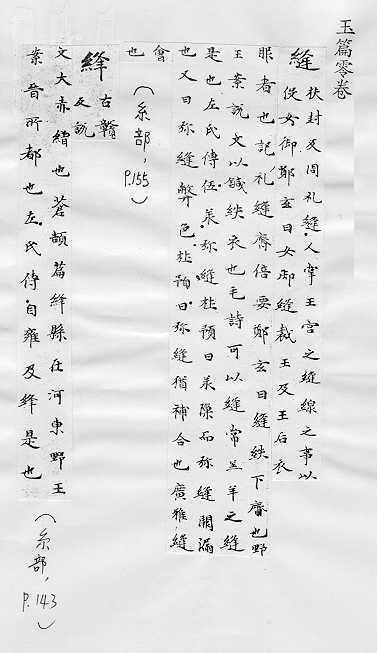 玉篇零卷
縫 扶封反周礼縫人掌王宮之縫線之事以
役女御鄭玄曰女御縫裁王及王后衣
服者也記礼縫齊倍要鄭玄曰縫紩下齊也野
王案說文以鍼紩衣也毛詩可以縫常羔羊之縫
是也左氏傳伍羕弥縫杜預曰羕隙而弥縫闕漏
也又曰弥縫弊邑杜預曰弥縫猶補合也廣雅縫
會
也
(糸部, P.155)
絳 古贛反說
文大赤繒也蒼頡篇絳縣在河東野王
案晉所都也左氏傳自雍及絳是也
(糸部, P.143)